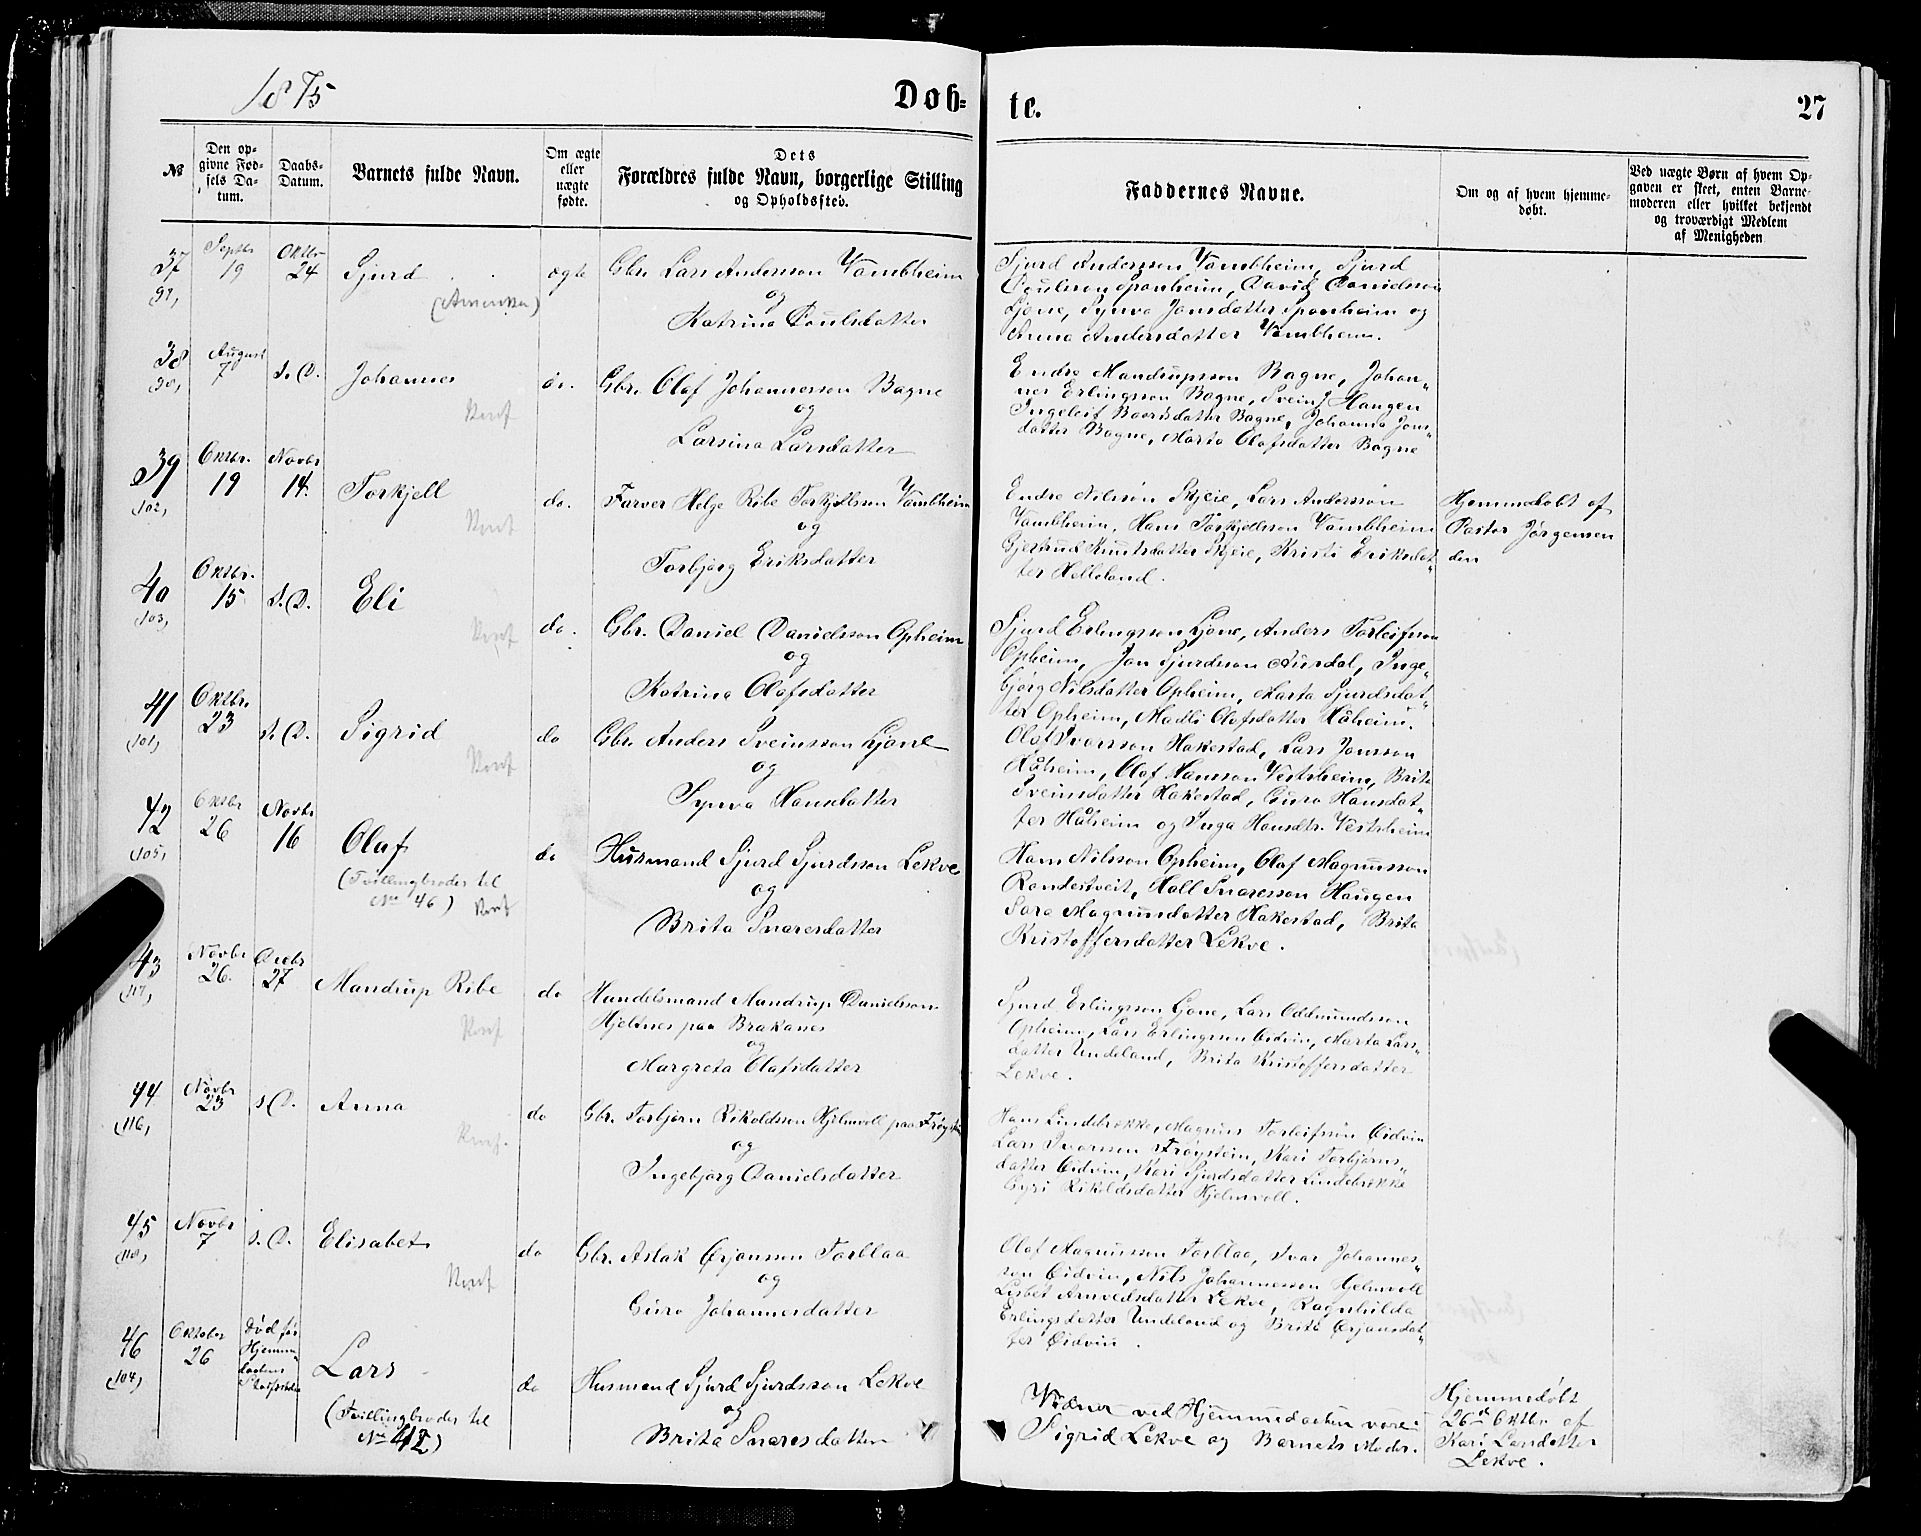 1875
Døb-
te.
27
№
Den op-
givne Fød-
sels Da-
tum.
Daabs-
Datum.
Barnets fulde Navn.
Om ægte
eller
uægte
fødte.
Dets
Forældres fulde Navn, borgerlige Stilling
og Opholdssted.
Faddernes Navne.
Om og af hvem hjemme-
døbt.
Ved uægte Børn af hvem Op-
gaven er skeet, enten Barne-
moderen eller hvilket bekjendt
og troværdigt Medlem
af Menigheden
37
Septbr
19
Oktbr
24
Sjurd
(Amerika)
ægte
Gbr. Lars Andersson Vambheim
og
Katrina Poulsdatter
Sjurd Andersson Vambheim, Sjurd
Poulsson Sponheim, David Danielsson
Ljone, Synva Jonsdatter Sponheim og
Anna Andersdatter Vambheim.
38
(90)
August
7
s. D.
Johannes
Conf
do.
Gbr. Olaf Johannesson Bagne
og
Larsina Larsdatter
Endre Mandrupsson Bagne, Johan-
nes Erlingsson Bagne, Svein Haugen
Ingeleif Baarsdatter Bagne, Johanna Jons-
datter Bagne, Marta Olafsdatter Bagne
39
(102)
Oktbr.
19
Novbr
14.
Torkjell
Conf
do.
Farver Helge Ribe Torkjellsson Vambheim
og
Torbjørg Eriksdatter
Endre Nilsson Skjeie, Lars Andersson
Vambheim, Hans Torkjellsson Vambheim
Gjertrud Knutsdatter Skjeie, Kristi Eriksdat-
ter Helleland.
Hjemmedøbt af
Pastor Jørgensen
den
40
(103)
Oktbr.
15
s. D.
Eli
Conf
do.
Gbr. Daniel Danielsson Opheim
og
Katrina Olafsdatter
Sjurd Erlingsson Ljone, Anders Torleifsson
Opheim, Jon Sjurdsson Aurdal, Inge-
bjørg Nilsdatter Opheim, Marta Sjurdsdat-
ter Opheim, Madli Olafsdatter Håheim.
41
(101)
Oktbr.
23
s. D.
Sigrid
Conf
do
Gbr. Anders Sveinsson Ljone
og
Synva Hansdatter
Olaf Ivarsson Hakestad, Lars Jonsson
Håheim, Olaf Hansson Vestrheim, Brita
Sveinsdatter Hakestad, Guro Hansdat-
ter Håheim og Inga Hansdtr. Vestrheim
42
(105)
Oktbr
26
Novbr
16
Olaf
(Tvillingbroder til
No 46)
Conf
do
Husmand Sjurd Sjurdsson Lekve
og
Brita Snaresdatter
Hans Nilsson Opheim, Olaf Magnusson
Rondestveit, Hall Snaresson Haugen
Sara Magnusdatter Hakestad, Brita
Kristoffersdatter Lekve.
43
(117)
Novbr
26.
Decbr
27
Mandrup Ribe
Conf
do
Handelsmand Mandrup Danielsson
Hjeltnes paa Brakanes
og
Margreta Olafsdatter
Sjurd Erlingsson Ljone, Lars Oddmundsson
Opheim, Lars Erlingsson Eidvin, Marta Lars-
datter Undeland, Brita Kristoffersdatter
Lekve.
44
(116)
Novbr
23
s. D.
Anna
Conf.
do
Gbr. Torbjørn Rikoldsson Hjelmvoll paa Frøystein
og
Ingebjørg Danielsdatter
Hans Lindebrekke, Magnus Torleifsson Eidvin
Lars Ivarsson Frøystein, Kari Torbjørns-
datter Eidvin, Kari Sjurdsdatter Lindebrekke
Gyri Rikoldsdatter Hjelmvoll.
45
(118)
Novbr
7
s. D.
Elisabet
Conf
do
Gbr. Aslak Ørjansen Torblaa
og
Guro Johannesdatter
Olaf Magnusson Torblaa, Ivar Johannes-
son Eidvin, Nils Johannesson Hjelmvoll
Lisbet Arnvedsdatter Lekve, Ragnhilda
Erlingsdatter Undeland og Brita Ørjansdat-
ter Eidvin.
46
(104)
Oktober
26
Død før
Hjemme
daabens
Stadfæstelse
Lars
(Tvillingbroder til
No 42)
do
Husmand Sjurd Sjurdsson Lekve
og
Brita Snaresdatter
Vidner ved Hjemmedaaben vare:
Sigrid Lekve og Barnets Moder.
Hjemmedøbt
26d Oktbr. af
Kari Larsdatter
Lekve.